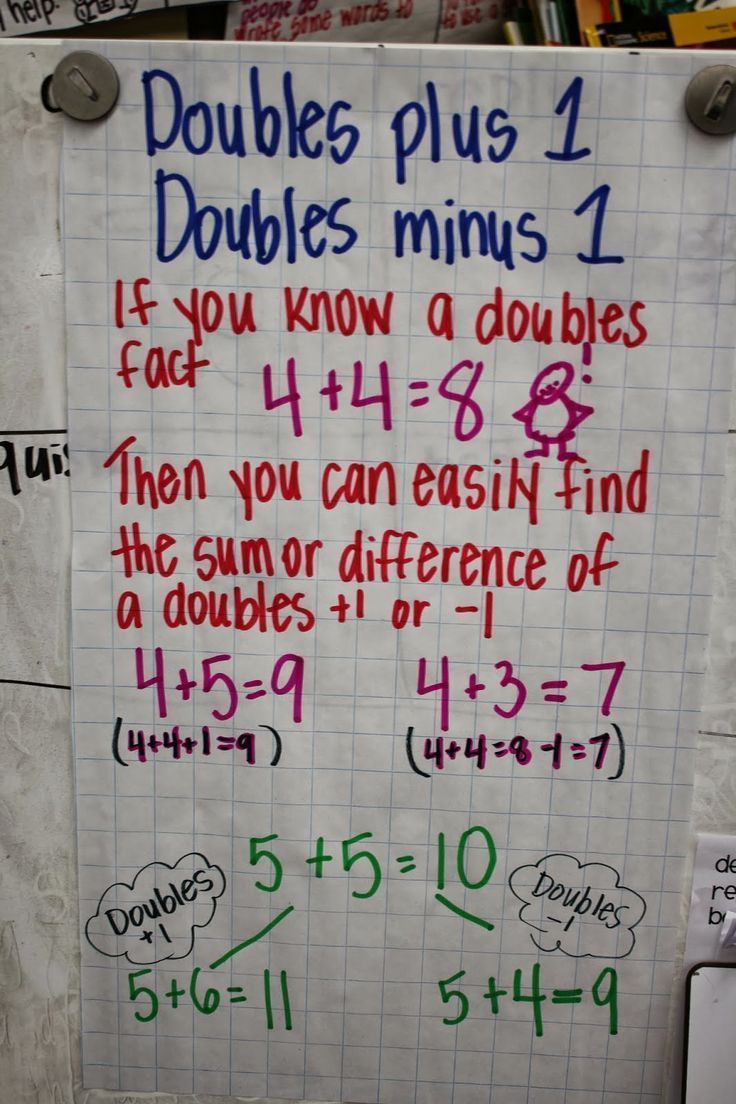 help.
people do
wrote, some words to
to use a
Science
Doubles plus 1
Doubles minus 1
If you know a doubles
fact 4+4=8 !
Then you can easily find
the sum or difference of
a doubles +1 or -1
4+5=9 4+3=7
(4+4+1=9) (4+4=8-1=7)
5+5=10
Doubles
+1
Doubles
-1
5+6=11 5+4=9